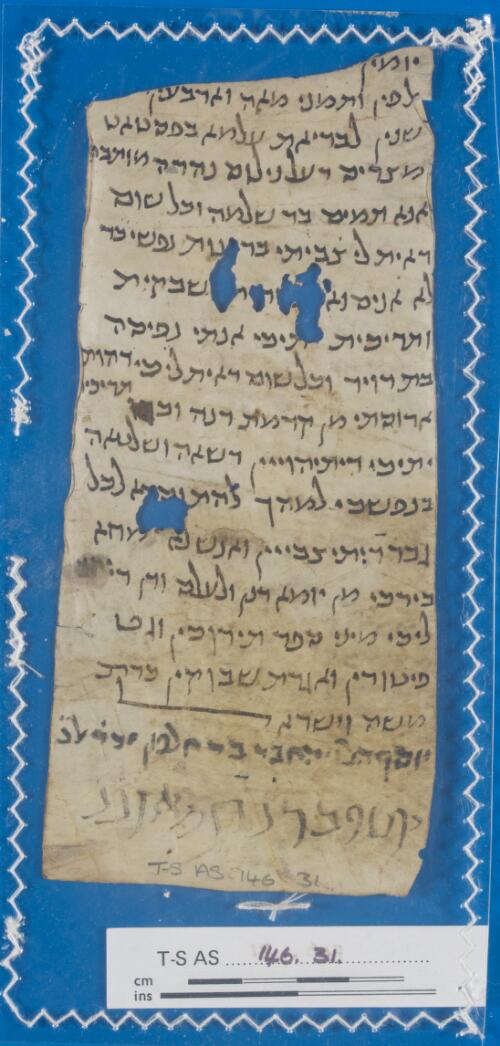 יומין
לפין ותמני מאה וארבעין
שנין לבריאת עלמא בפסטאט
מצרים דעל נילוס נהרה מותבה
אנא תמים בר שלמה וכל שום
דאית לי צביתי ברעות נפשי בד
לא אניסנא שבקית
ותריכית יתיכי אנתי נפיסה
בת דויד וכל שום דאית ליכי דהוית
ארוסתי מן קדמת דנה וכדו תריכי
יתיכי דיתיהוייין רשאה ושלטאה
בנפשכי למהך להת לכל
גבר דיתי צבייין ואנש לא ימחא
בידכי מן יומא דנן ולעלם ודן די
ליכי מיני ספר תירוכין וגט
פיטורין ואגרת שבוקין כדת
משה וישראל
יוסף בר חלפון
T-S AS 146 31
T-S AS 146. 31.
cm
ins